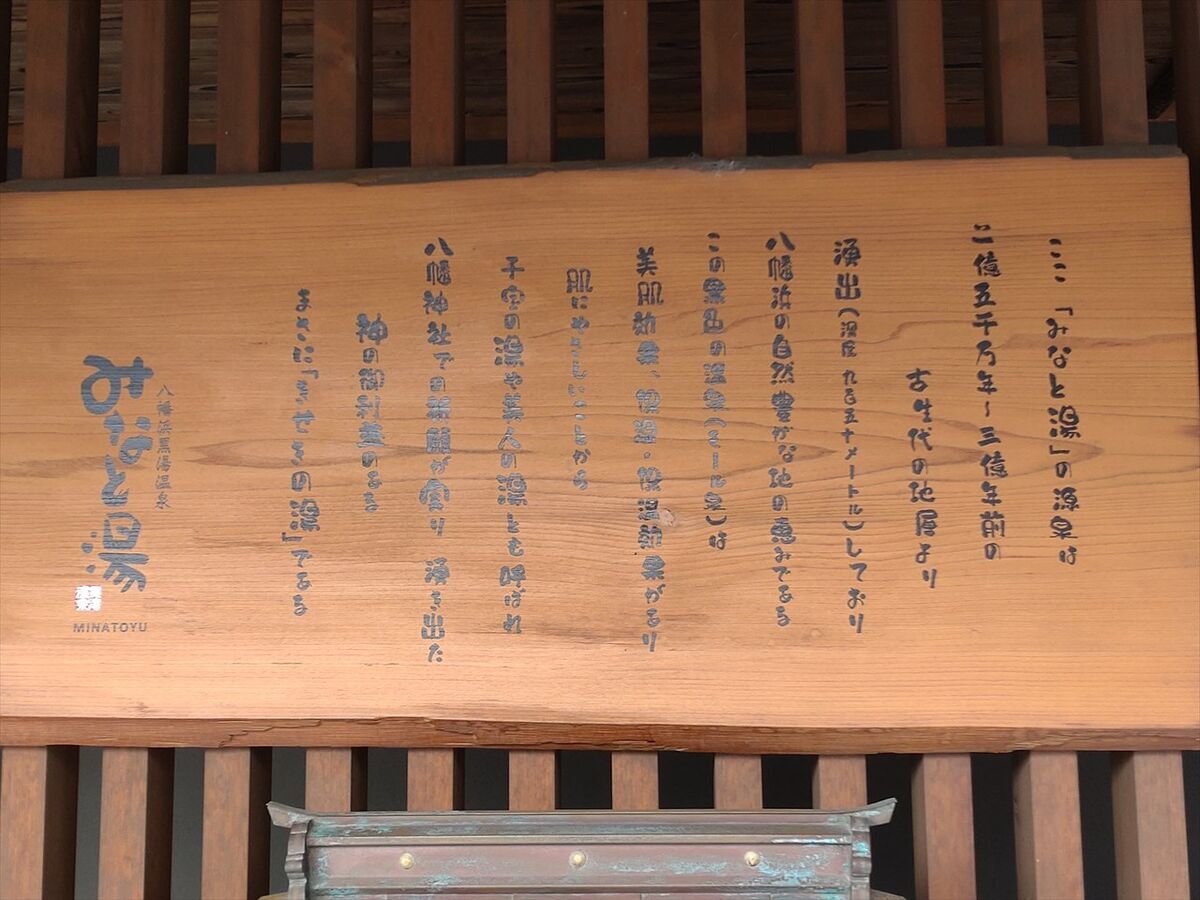 ここ「みなと湯」の源泉は
二億五千万年~三億年前の
古生代の地層より
湧出(深度 九百五十メートル)しており
八幡浜の自然豊かな地の恵みである
この黒色の温泉(モール泉)は
美肌効果、保湿・保温効果があり
肌にやさしいことから
子宝の湯や美人の湯とも呼ばれ
八幡神社での祈願が実り 湧き出た
神の御利益のある
まさに「きせきの湯」である
八幡浜黒湯温泉
みなと湯
MINATOYU